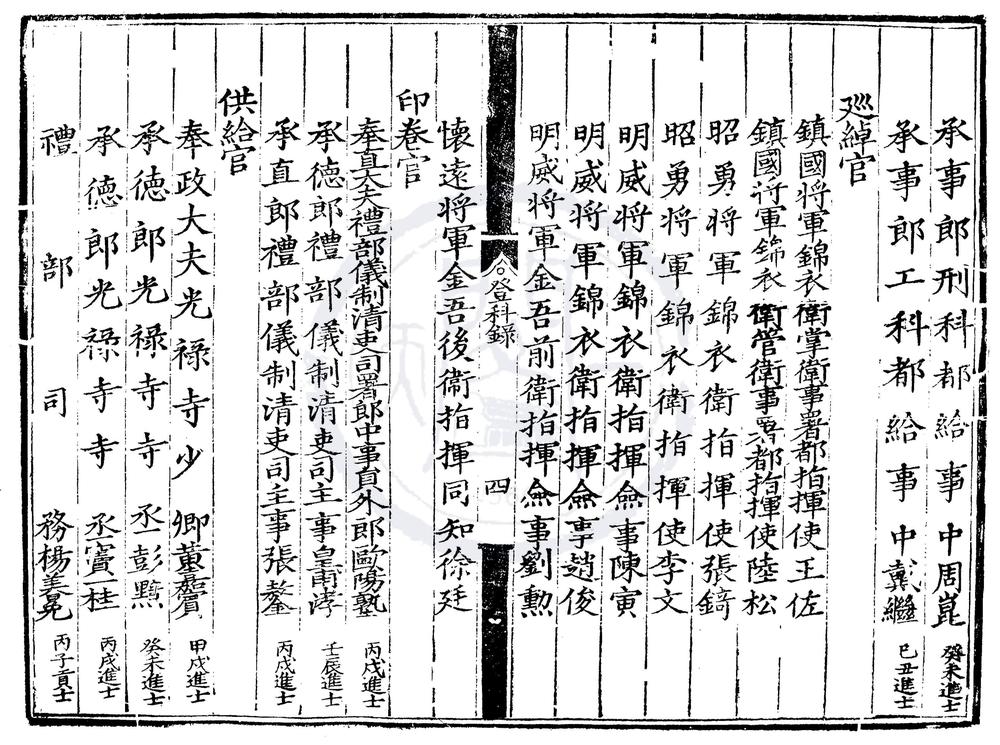 承事郎刑科都給事中周崑癸未進士
承事郎工科都給事中戴繼己丑進士
廵綽官
鎮國將軍錦衣衛掌衛事署都指揮使王佐
鎮國將軍錦衣衛管衛事署都指揮使陸松
昭勇將軍錦衣衛指揮使張錡
昭勇將軍錦衣衛指揮使李文
明威將軍錦衣衛指揮僉事陳寅
明威將軍錦衣衛指揮僉事趙俊
明威將軍金吾前衛指揮僉事劉勲
登科錄
四
懷遠將軍金吾後衛指揮同知徐廷
印卷官
奉直大夫禮部儀制清吏司署郎中事員外郎歐陽塾丙戌進士
承德郎禮部儀制清吏司主事皇甫涍壬辰進士
承直郎禮部儀制清吏司主事張鏊丙戌進士
供給官
奉政大夫光祿寺少卿董麐甲戌進士
承德郎光祿寺寺丞彭黯癸未進士
承德郎光祿寺寺丞竇一桂丙戌進士
禮部司務楊美晃丙子貢士